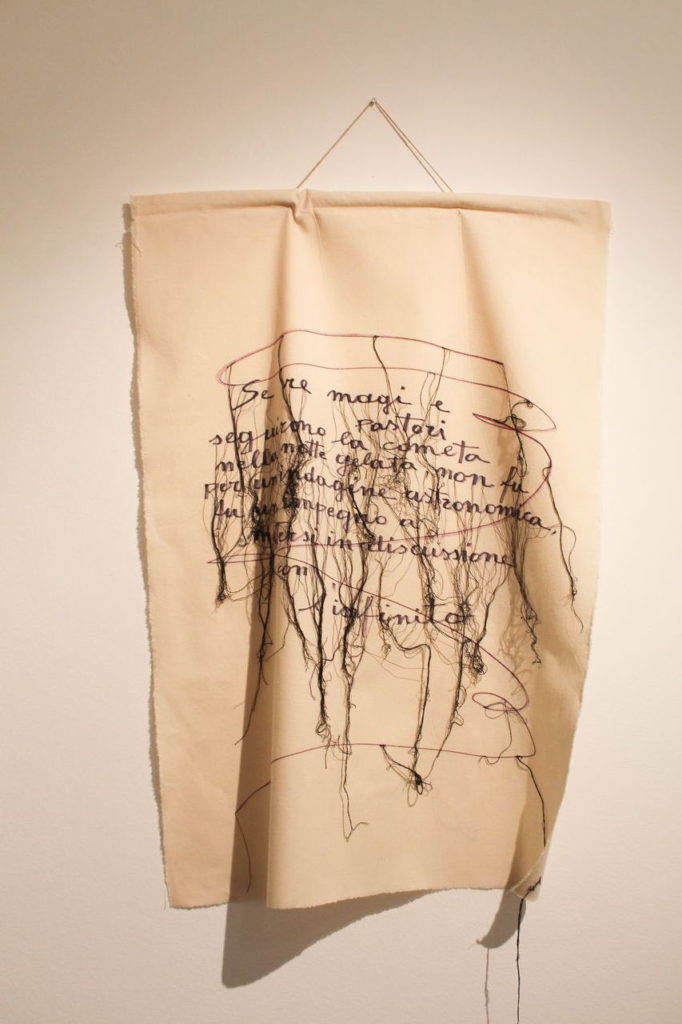 Se re magi e
pastori
seguirono la cometa
nella notte gelata non fu
per un'indagine astronomica,
fu un impegno a
mettersi in discussione
con
l'infinito